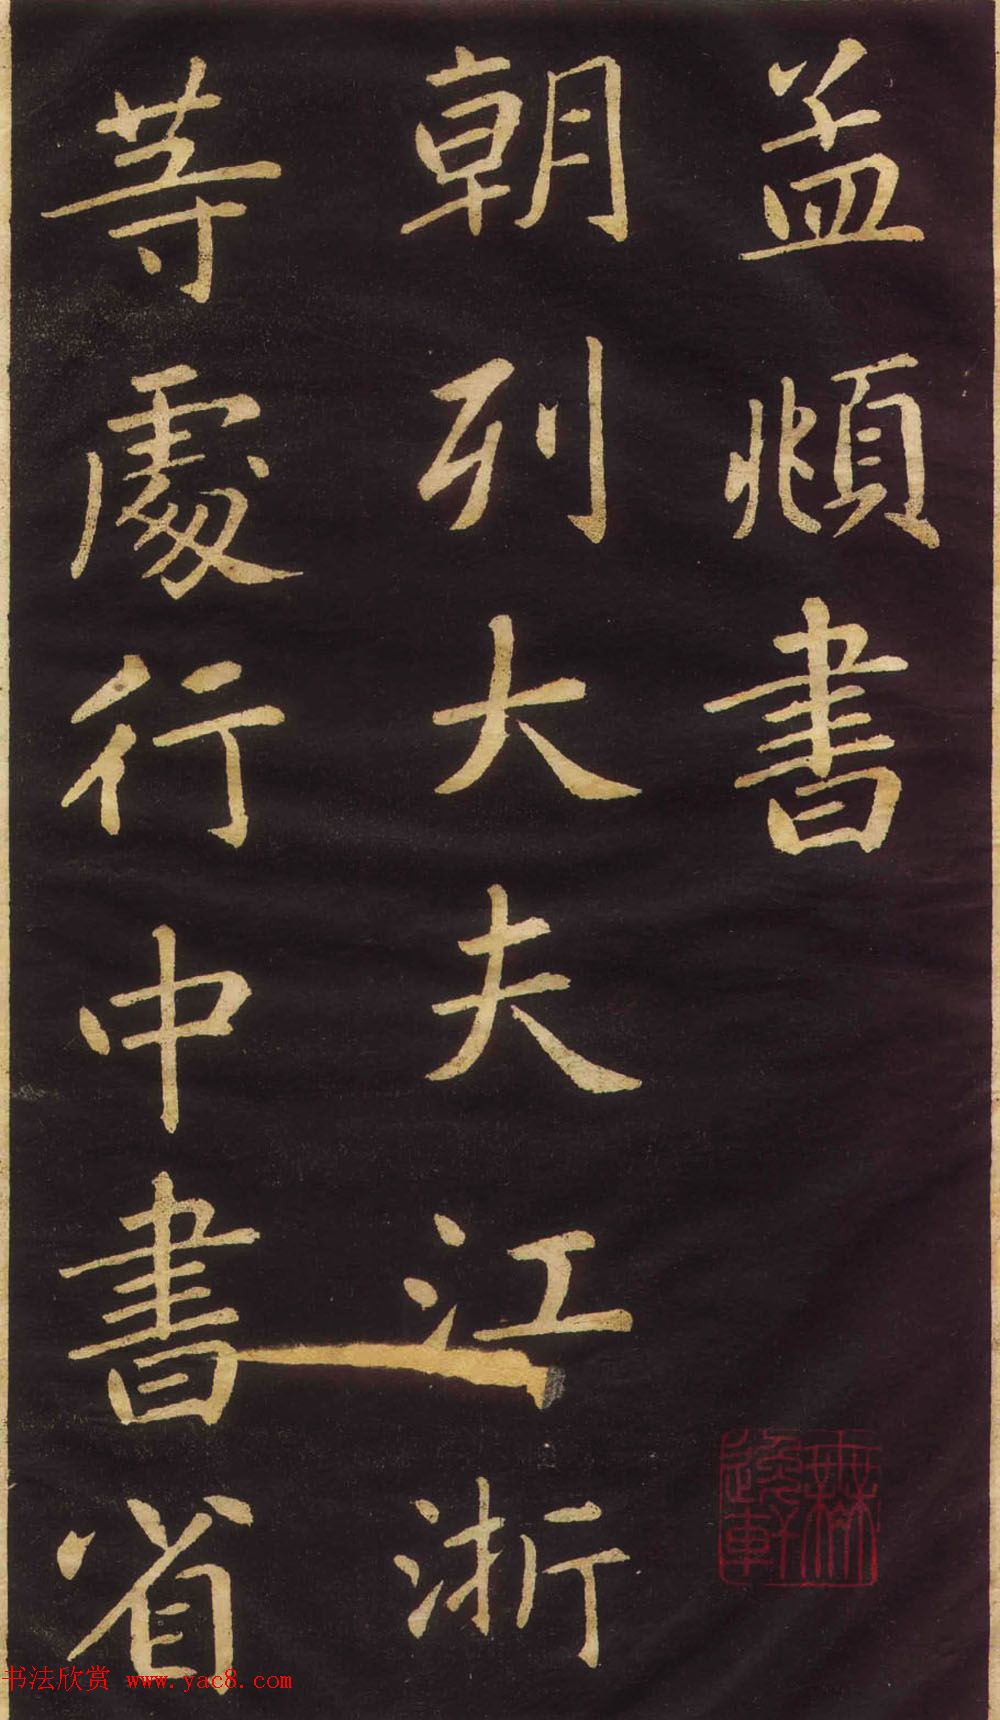 孟頫書
朝列大夫江浙
等處行中書省
無逸軒
书法欣赏 www.yac8.com